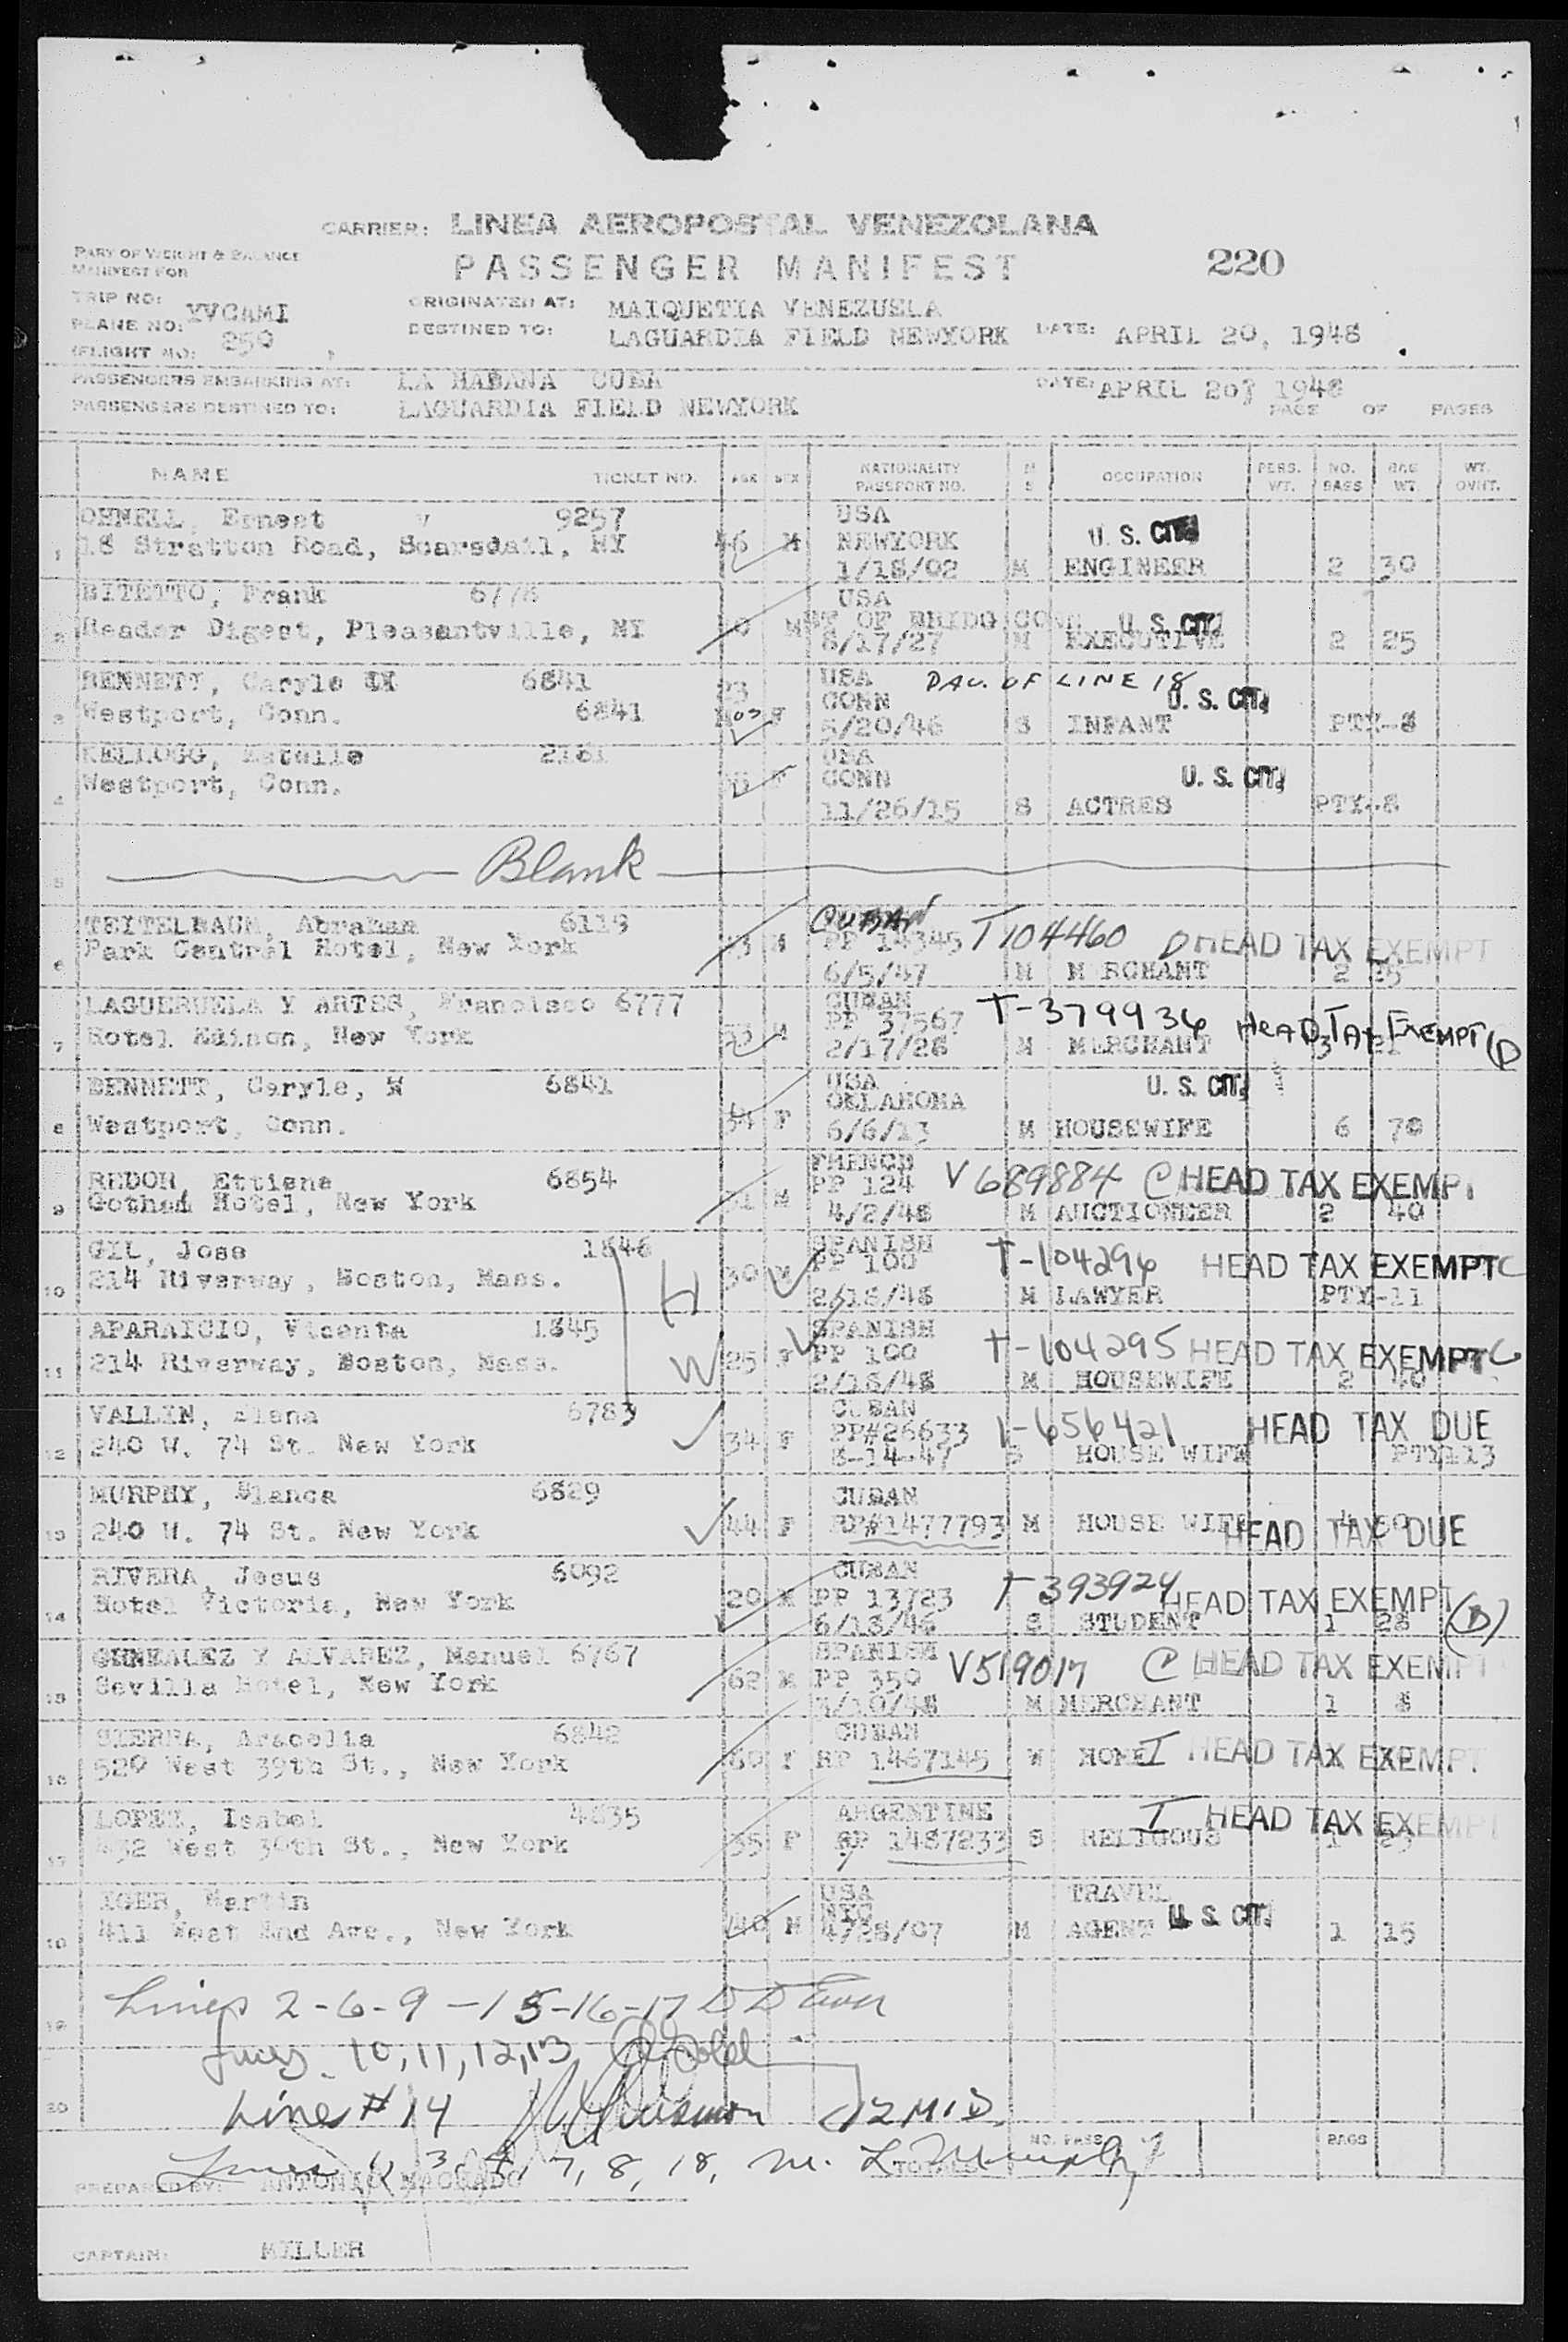 CARRIER: LINEA AEROPOSTAL VENEZOLANA
PART OF WEIGHT & BALANCE
MANIFEST FOR
PASSENGER MANIFEST
220
TRIP NO:
PLANE NO: YVCAMI
(FLIGHT NO: 250
ORIGINATED AT: MAIQUETIA VENEZUELA
DESTINED TO: LAGUARDIA FIELD NEWYORK DATE: APRIL 20, 1948
PASSENGERS EMBARKING AT: LA HABANA CUBA DATE: APRIL 20, 1948
PASSENGERS DESTINED TO: LAGUARDIA FIELD NEWYORK PAGE OF PAGES
NAME TICKET NO. AGE SEX NATIONALITY PASSPORT NO. M S OCCUPATION PERS. WT. NO. BAGS BAG WT. WT. OVHT.
Ernest 9257 USA
1 18 Stratton Road, Scarsdail, NY 46 M NEWYORK U. S. CIT.
1/18/02 M ENGINEER 2 30
BITETTO, Frank 6778 USA
2 Reader Digest, Pleasantville, NY M ST OF BRIDG CONN U. S. CIT.
8/17/27 M EXECUTIVE 2 25
BENNETT, Caryle 6841 USA DAU. OF LINE 18
3 Westport, Conn. 6841 23 MOS F CONN U. S. CIT.
5/20/46 S INFANT PTY-8
KELLOGG, Estelle 2161 USA
4 Westport, Conn. F CONN U. S. CIT.
11/26/15 S ACTRES PTY-8
5 Blank
TEITELBAUM, Abraham 6119 CUBAN
6 Park Central Hotel, New York M PP 14345 T104460 HEAD TAX EXEMPT
6/5/47 M MERCHANT 2 35
LAGUERUELA Y ARTES, Francisco 6777 CUBAN
7 Hotel Edison, New York 53 M PP 37567 T-379936 HEAD TAX EXEMPT D
2/17/28 M MERCHANT 3 21
BENNETT, Caryle, 6841 USA U. S. CIT.
8 Westport, Conn. 34 F OKLAHOMA
6/6/13 M HOUSEWIFE 6 70
REDON, Ettiene 6854 FRENCH
9 Gotham Hotel, New York 31 M PP 124 V689884 C HEAD TAX EXEMPT
4/2/48 M AUCTIONEER 2 40
GIL, Jose 1846 SPANISH
10 214 Riverway, Boston, Mass. H 30 M PP 100 T-104296 HEAD TAX EXEMPT C
2/18/48 M LAWYER PTY-11
APARAICIO, Vicenta 1845 SPANISH
11 214 Riverway, Boston, Mass. W 25 F PP 100 T-104295 HEAD TAX EXEMPT C
2/18/48 M HOUSEWIFE 2 40
VALLIN, Elena 6783 CUBAN
12 240 W. 74 St. New York 34 F PP#26633 1-656421 HEAD TAX DUE
8-14-47 S HOUSE WIFE PTY113
MURPHY, Blanca 6829 CUBAN
13 240 W. 74 St. New York 44 F RP#1477793 M HOUSE WIFE HEAD TAX DUE
RIVERA, Jesus 6092 CUBAN
14 Hotel Victoria, New York 20 M PP 13723 T 393924 HEAD TAX EXEMPT (B)
6/18/46 S STUDENT 1 28
GONZALEZ Y ALVAREZ, Manuel 6767 SPANISH
15 Sevilla Hotel, New York 62 M PP 350 V519017 C HEAD TAX EXEMPT
3/10/48 M MERCHANT 1 8
SIERRA, Aracelia 6842 CUBAN
16 520 West 39th St., New York 60 F RP 1467145 W HOME I HEAD TAX EXEMPT
LOPEZ, Isabel 4835 ARGENTINE
17 432 West 30th St., New York 35 F RP 1487233 S RELIGOUS I HEAD TAX EXEMPT
IGER, Martin USA TRAVEL
18 411 West End Ave., New York 40 M NYC U. S. CIT.
4/28/07 M AGENT 1 15
19 Lines 2-6-9-15-16-17
Lines 10,11,12,13
20 Line # 14
NO. PASS. BAGS
Lines 1, 3, 4, 7, 8, 18, M. L. Murphy
TOTALS
PREPARED BY: ANTONIO MACHADO
CAPTAIN: MILLER